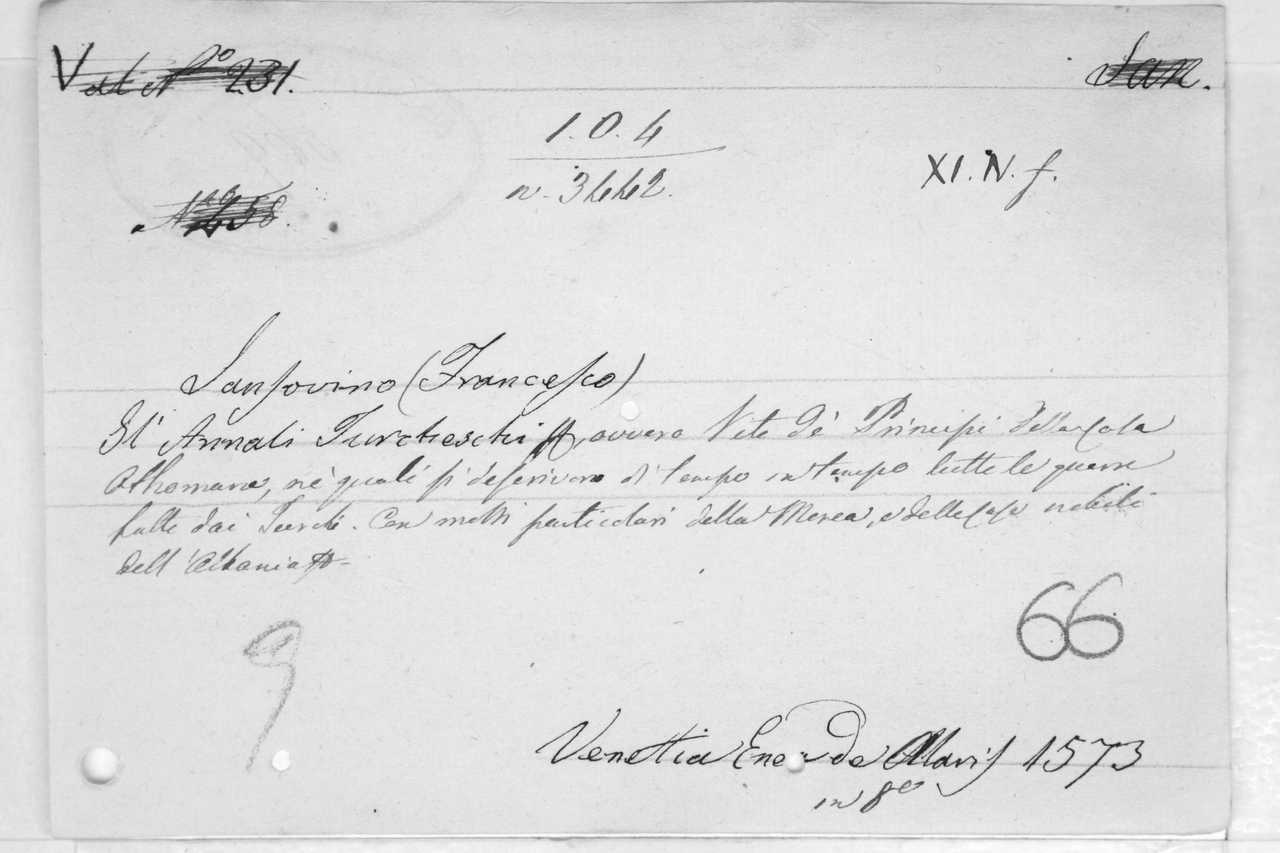 Vol. N.o 231.
San.
1.0.4
n. 3442.
XI. N. f.
Sansovino (Francesco)
Gl' Annali Turcheschi, ovvero Vite de' Principi della Casa
Othomana, ne' quali si descrivono di tempo in tempo tutte le guerre
fatte dai Turchi. Con molti particolari della Morea, e delle case nobili
dell' Albania
66
9
Venetia Enea de Alaris 1573
in 8o